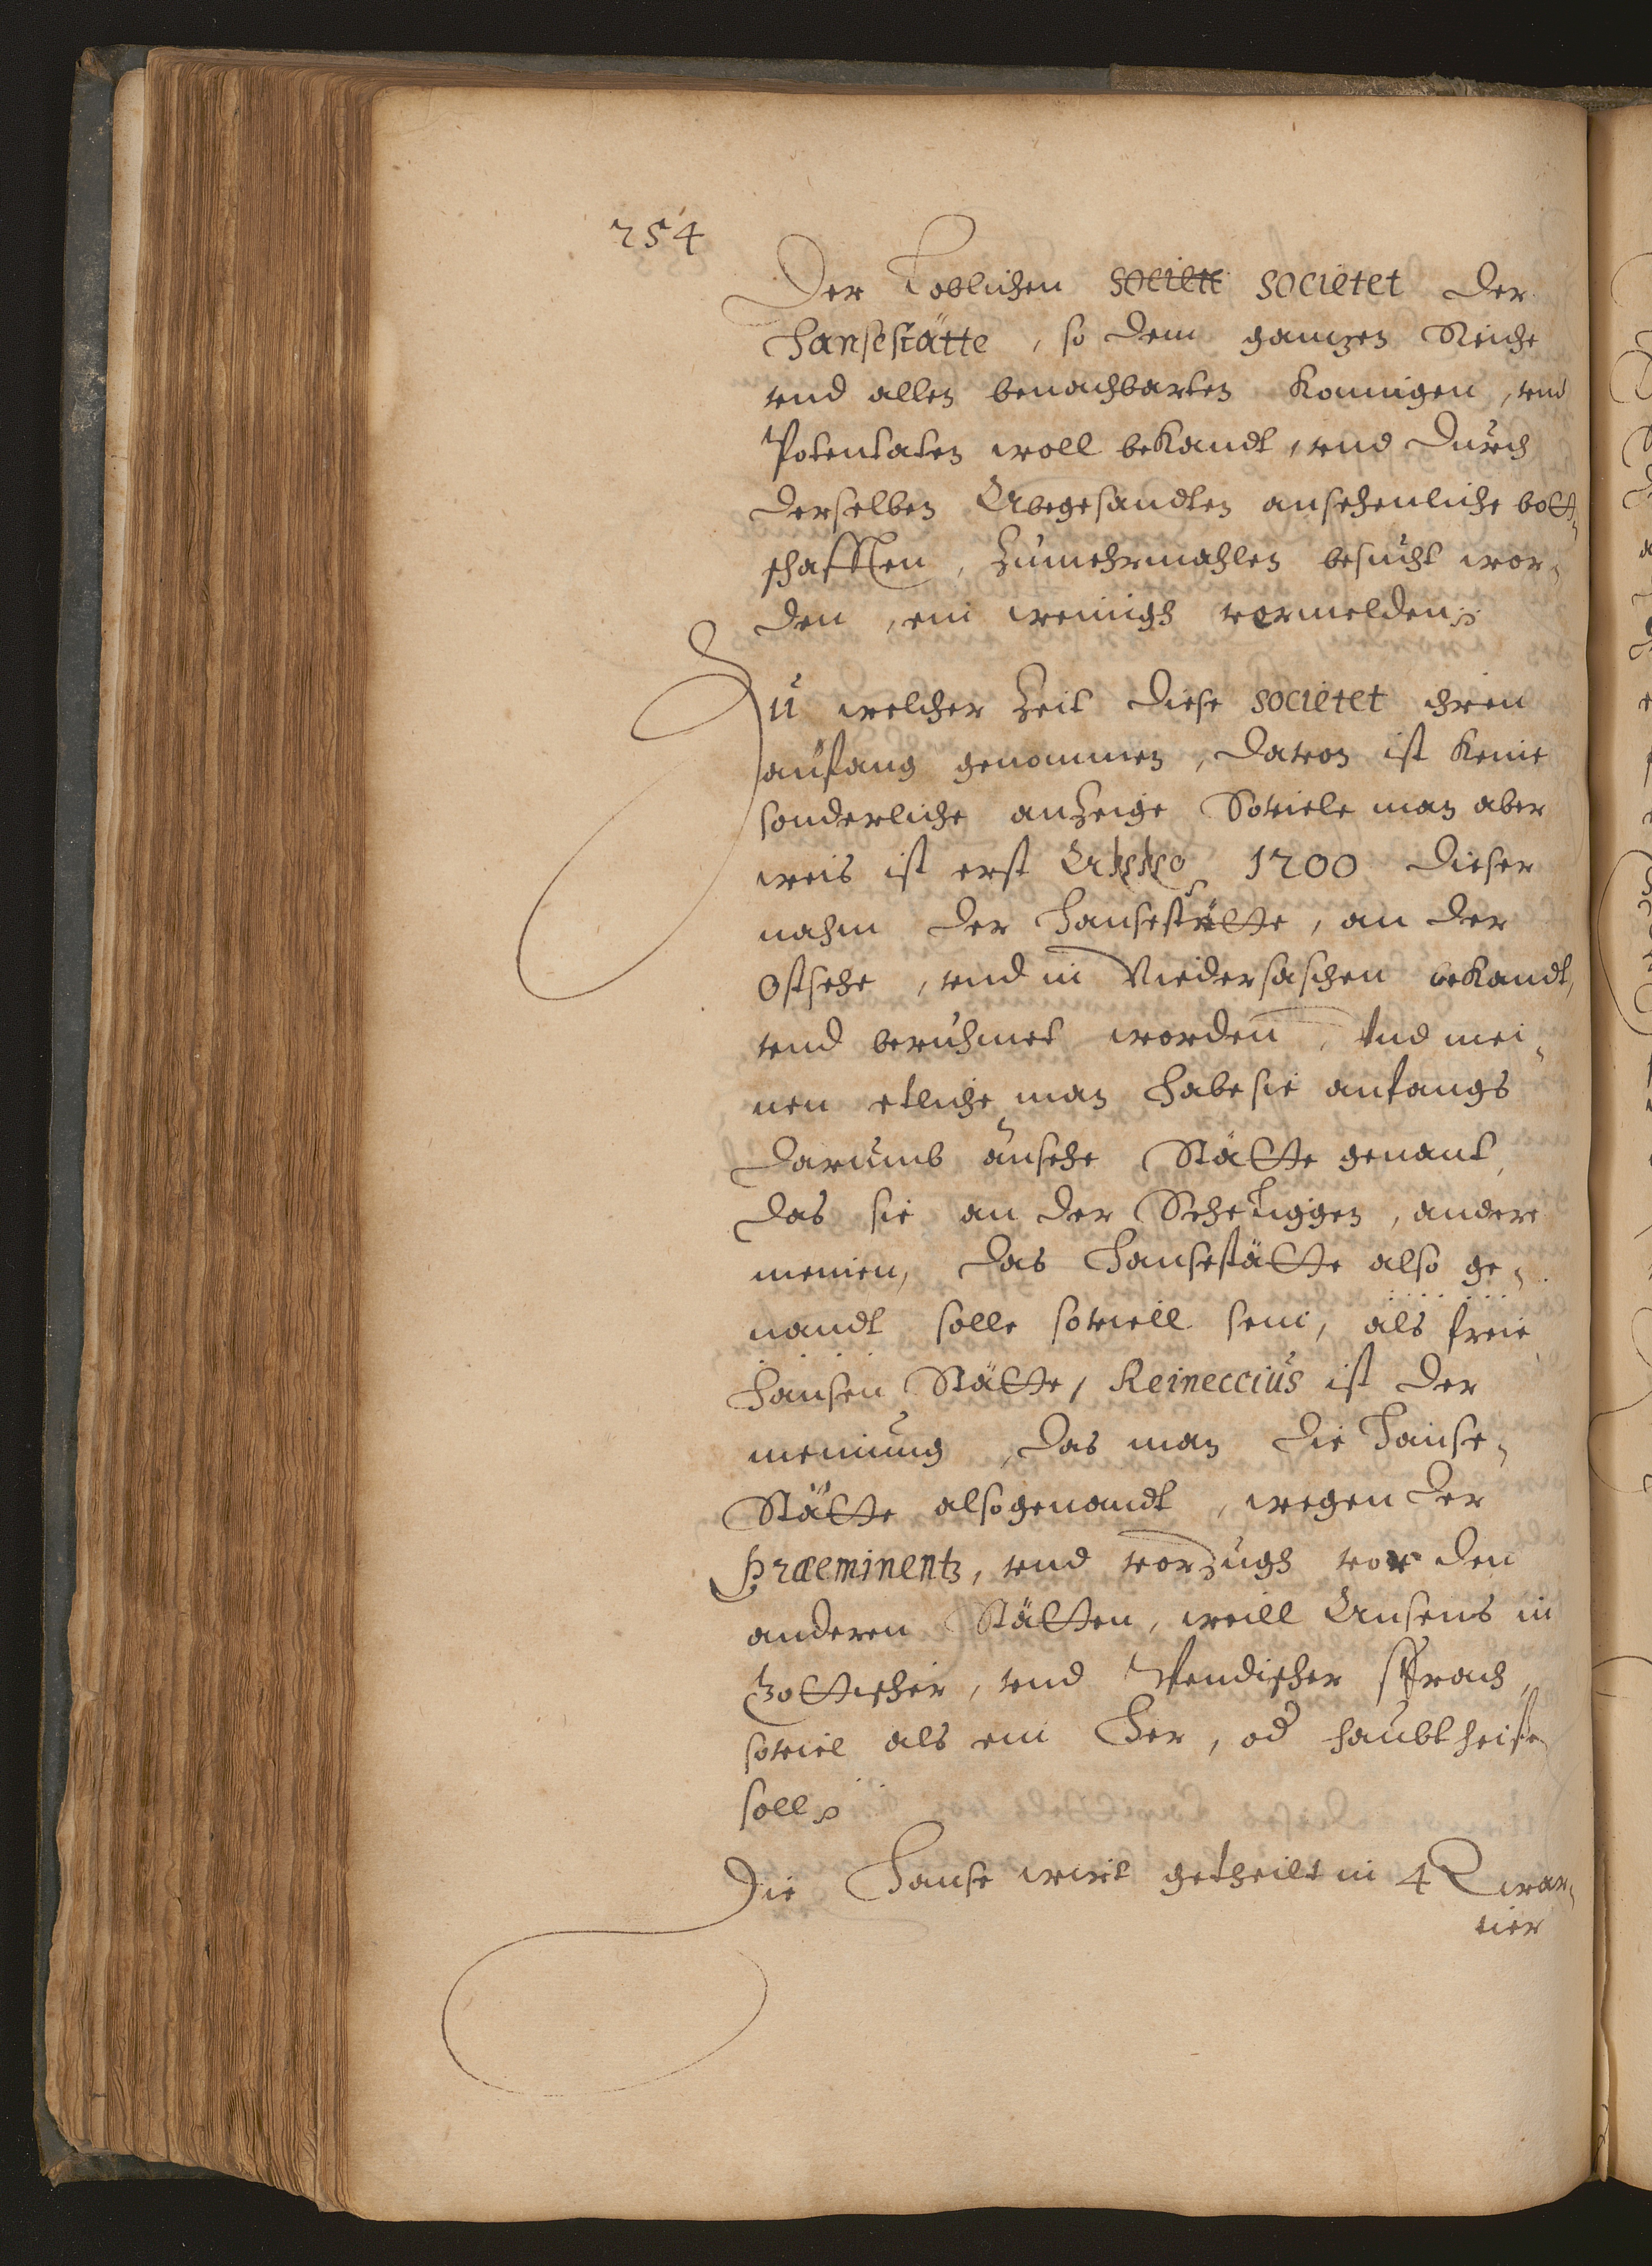 254
Der Loblichen societe societet der
Hansestätte, so dem gantzen Reiche
vnd allen benachbarten Konnigen, vnd
Potentaten woll bekandt, vnd durch
derselben Abegesandten ansehenliche bott-
schafften, zumehrmahlen besucht wor-
den, ein weinigh vormelden
Zu welcher Zeit diese societet ihren
anfang genommen, davon ist keine
sonderliche anzeige Soviele man aber
weis ist erst Anno 1200 dieser
nahm der Hansestätte, an der
Ostsehe, vnd in Niedersachsen bekandt,
vnd beruhmet worden, Vnd mei-
nen etliche man habe sie anfangs
darumb ansehe Stätte genant,
das sie an der Sehe liggen, andere
meinen, das Hansestätte also ge-
nandt solle soviell sein, als freie
Hansen Stätte, Reineccius ist der
meinung, das man die Hanse-
Stätte also genandt, wegen der
præeminentz, vnd vorzugh vor den
anderen Stätten, weill Ansens in
Gottischer, vnd Wendischer sprach,
soviel als ein Her, od haubt heisse
soll
Die Hanse wirt getheilt in 4 Qwar-
tier